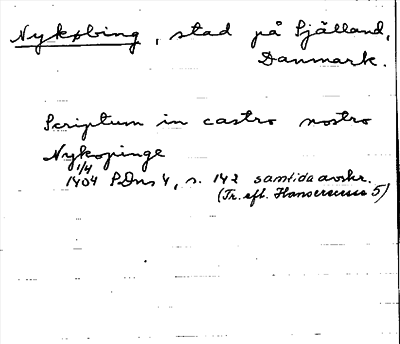 Nykøbing, stad på Själland,
Danmark.
Scriptum in castro nostro
Nykopinge
1/4
1404 SDns 4, s. 142 samtida avskr.
(Tr. eft. Hanserecesse 5)